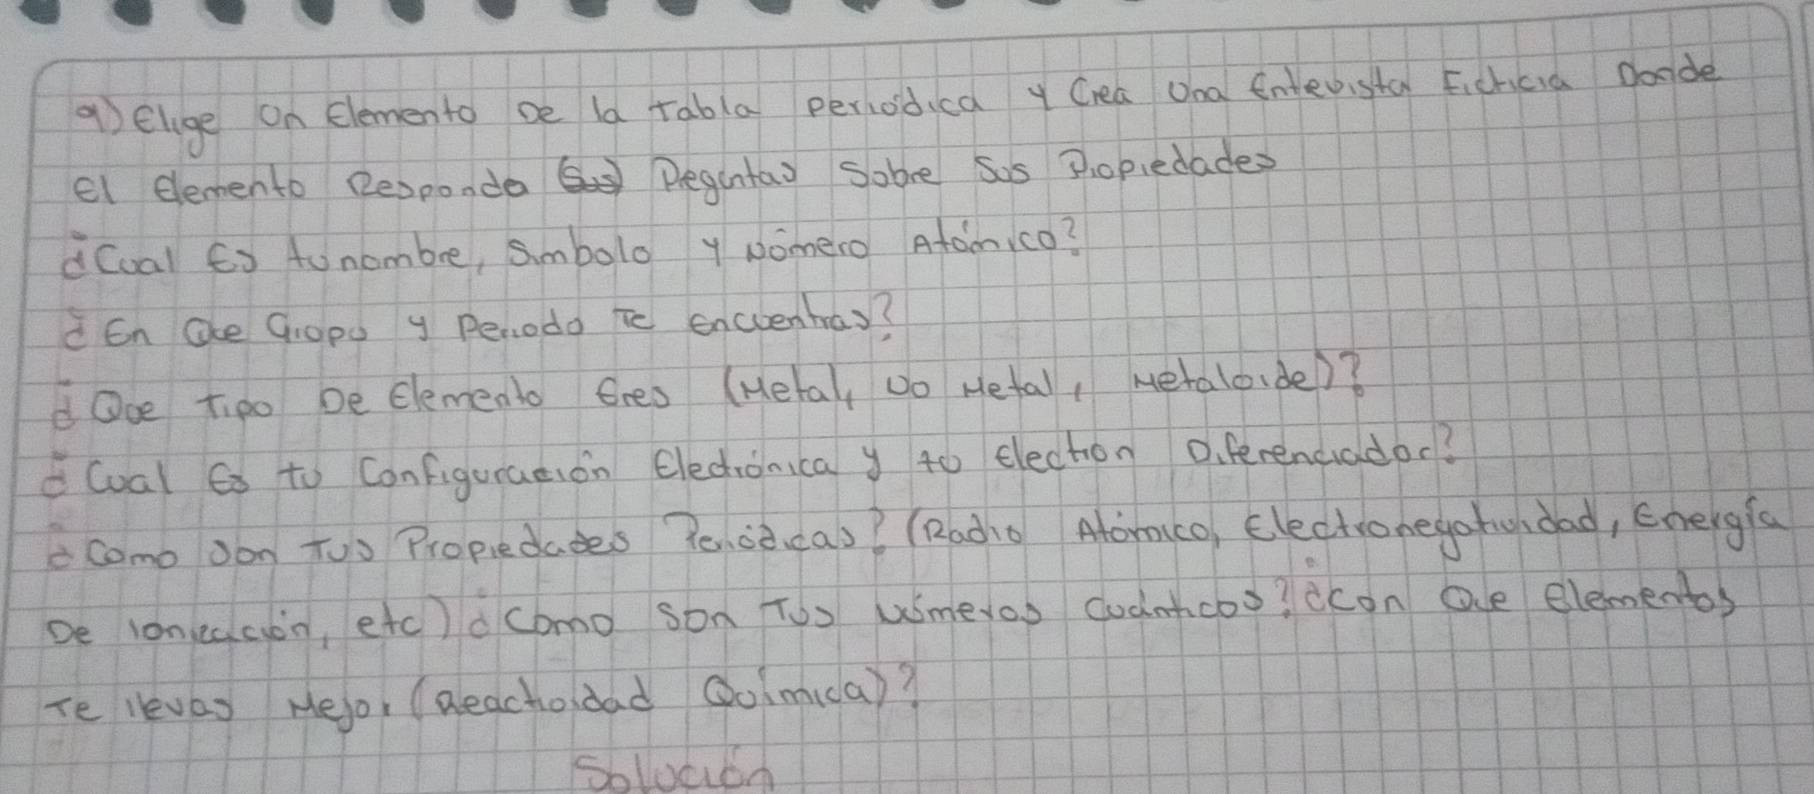 9) Elige Un Elemento De la tabla periódica y Crea Una Entevista Ficticia Donde
El Elemento Responda Peguntas Sobre Sus Propiedades
¿Cual Es tu nombre, Simbolo y Número Atómico?
¿En Que Grupo y Periodo Te Encuentras?
¿Que Tipo De Elemento Eres (Metal, No Metal, Metaloide)?
¿Cual Es tu Configuración Electrónica y tu Electron Diferenciador?
¿Como Son Tus Propiedades Periódicas? (Radio Atómico, Electronegatividad, Energía
De ionización, etc) ¿Como Son Tus Números Cuánticos? ¿Con Que Elementos
Te llevas Mejor (Reactividad Química)?
Solución